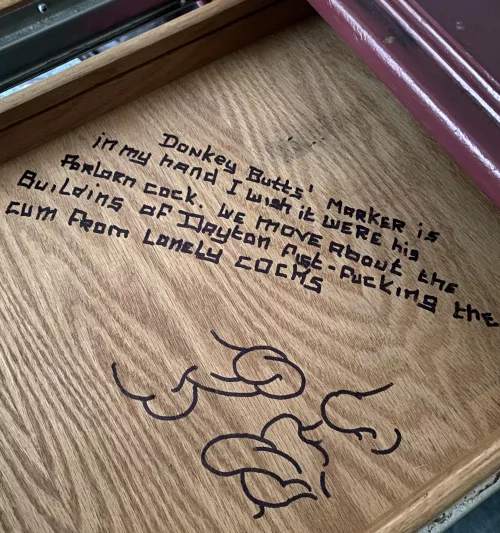 Donkey Butts' Marker is
in my hand I wish it were his
Forlorn cock. We move about the
Building of Dayton Fist-Fucking the
cum from lonely cocks